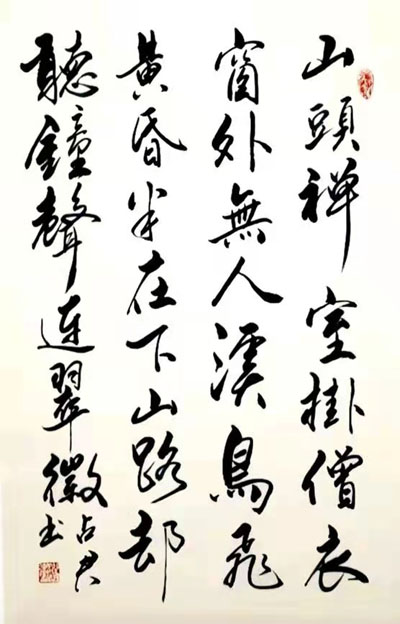 山頭禅室掛僧衣
窗外無人溪鳥飛
黄昏半在下山路却
聽鐘聲連翠微
占君书